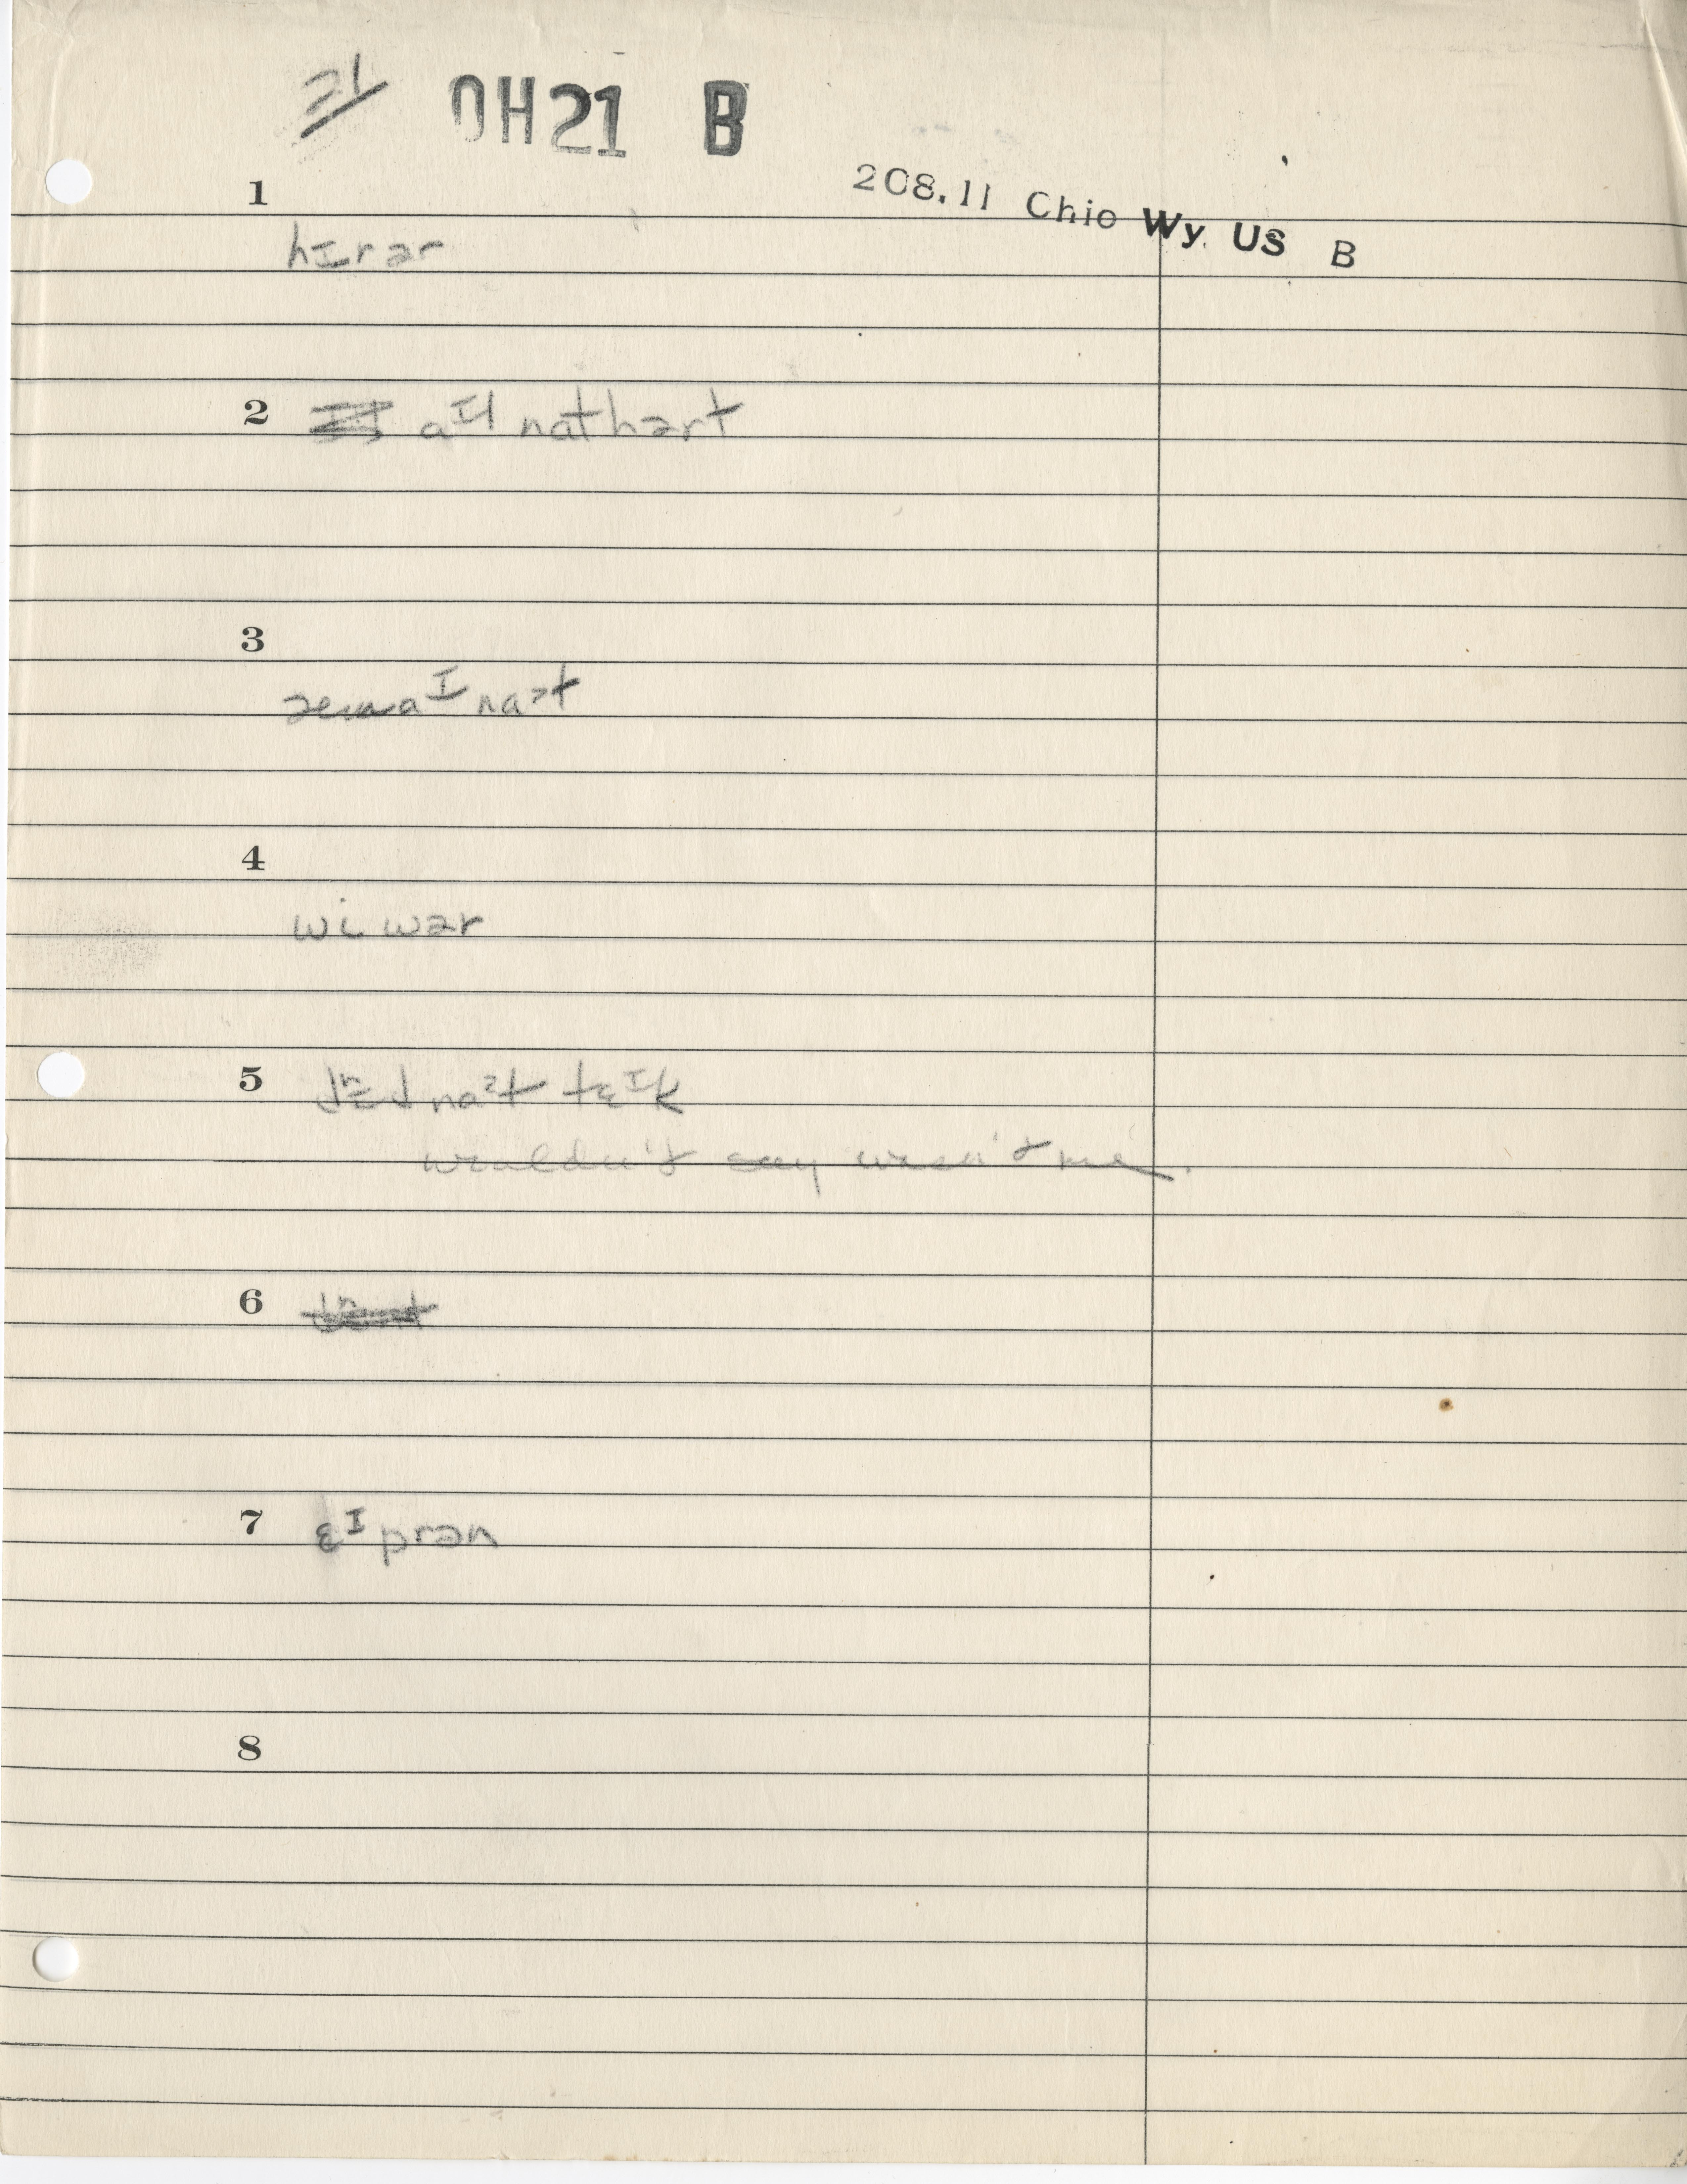 21 OH21 B
208.11 Ohio Wy. US B
1
hɪrər
2 aᴵl nathərt
3
aᴵ naᵊt
4
wi wər
5 naᵊt tɛᴵk
wouldn't say wasn't me.
6
7 ɛᴵprən
8